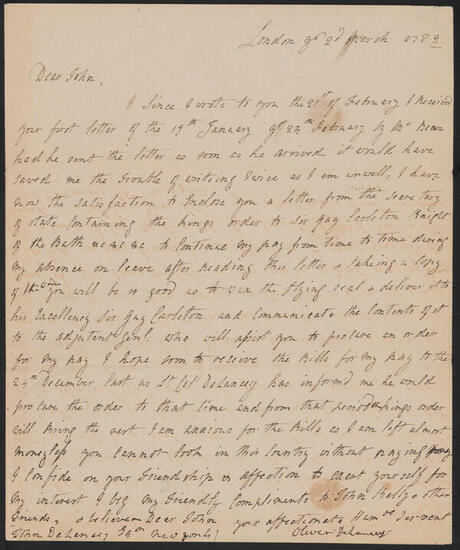 London ye 2d March 1783
Dear John,
Since I wrote to you the 21st of February I Received
your first letter of the 19th January ye 24th February by Mr Bean
had he sent the letter as soon as he arrived it would have
saved me the trouble of writing twice as I am unwell, I have
now the satisfaction to Inclose you a letter from the Secretary
of state Containing the kings order to Sir Guy Carleton Knight
of the Bath &c &c &c to Continue my pay from time to time during
my absence on leave after Reading this letter & taking a copy
of it you will be so good as to wax the flying seal & deliver it to
his Excellency Sir Guy Carleton and Communicate the Contents of it
to the adjutent Genl: who will assist you to procure an order
for my pay I hope soon to receive the Bills for my pay to the
24th December last as Lt Coll DeLancey has informd me he would
procure the order to that time and from that period kings order
will bring the rest I am anxious for the Bills as I am left almost
moneyless you cannot look in this country without paying money
I confide on your Friendship & affection to exert yourself for
my interest I beg my Friendly Compliments to John Kelly & other
Friends, & believe me Dear John your affectionate Humle Servent
John DeLancey New York Oliver DeLancey